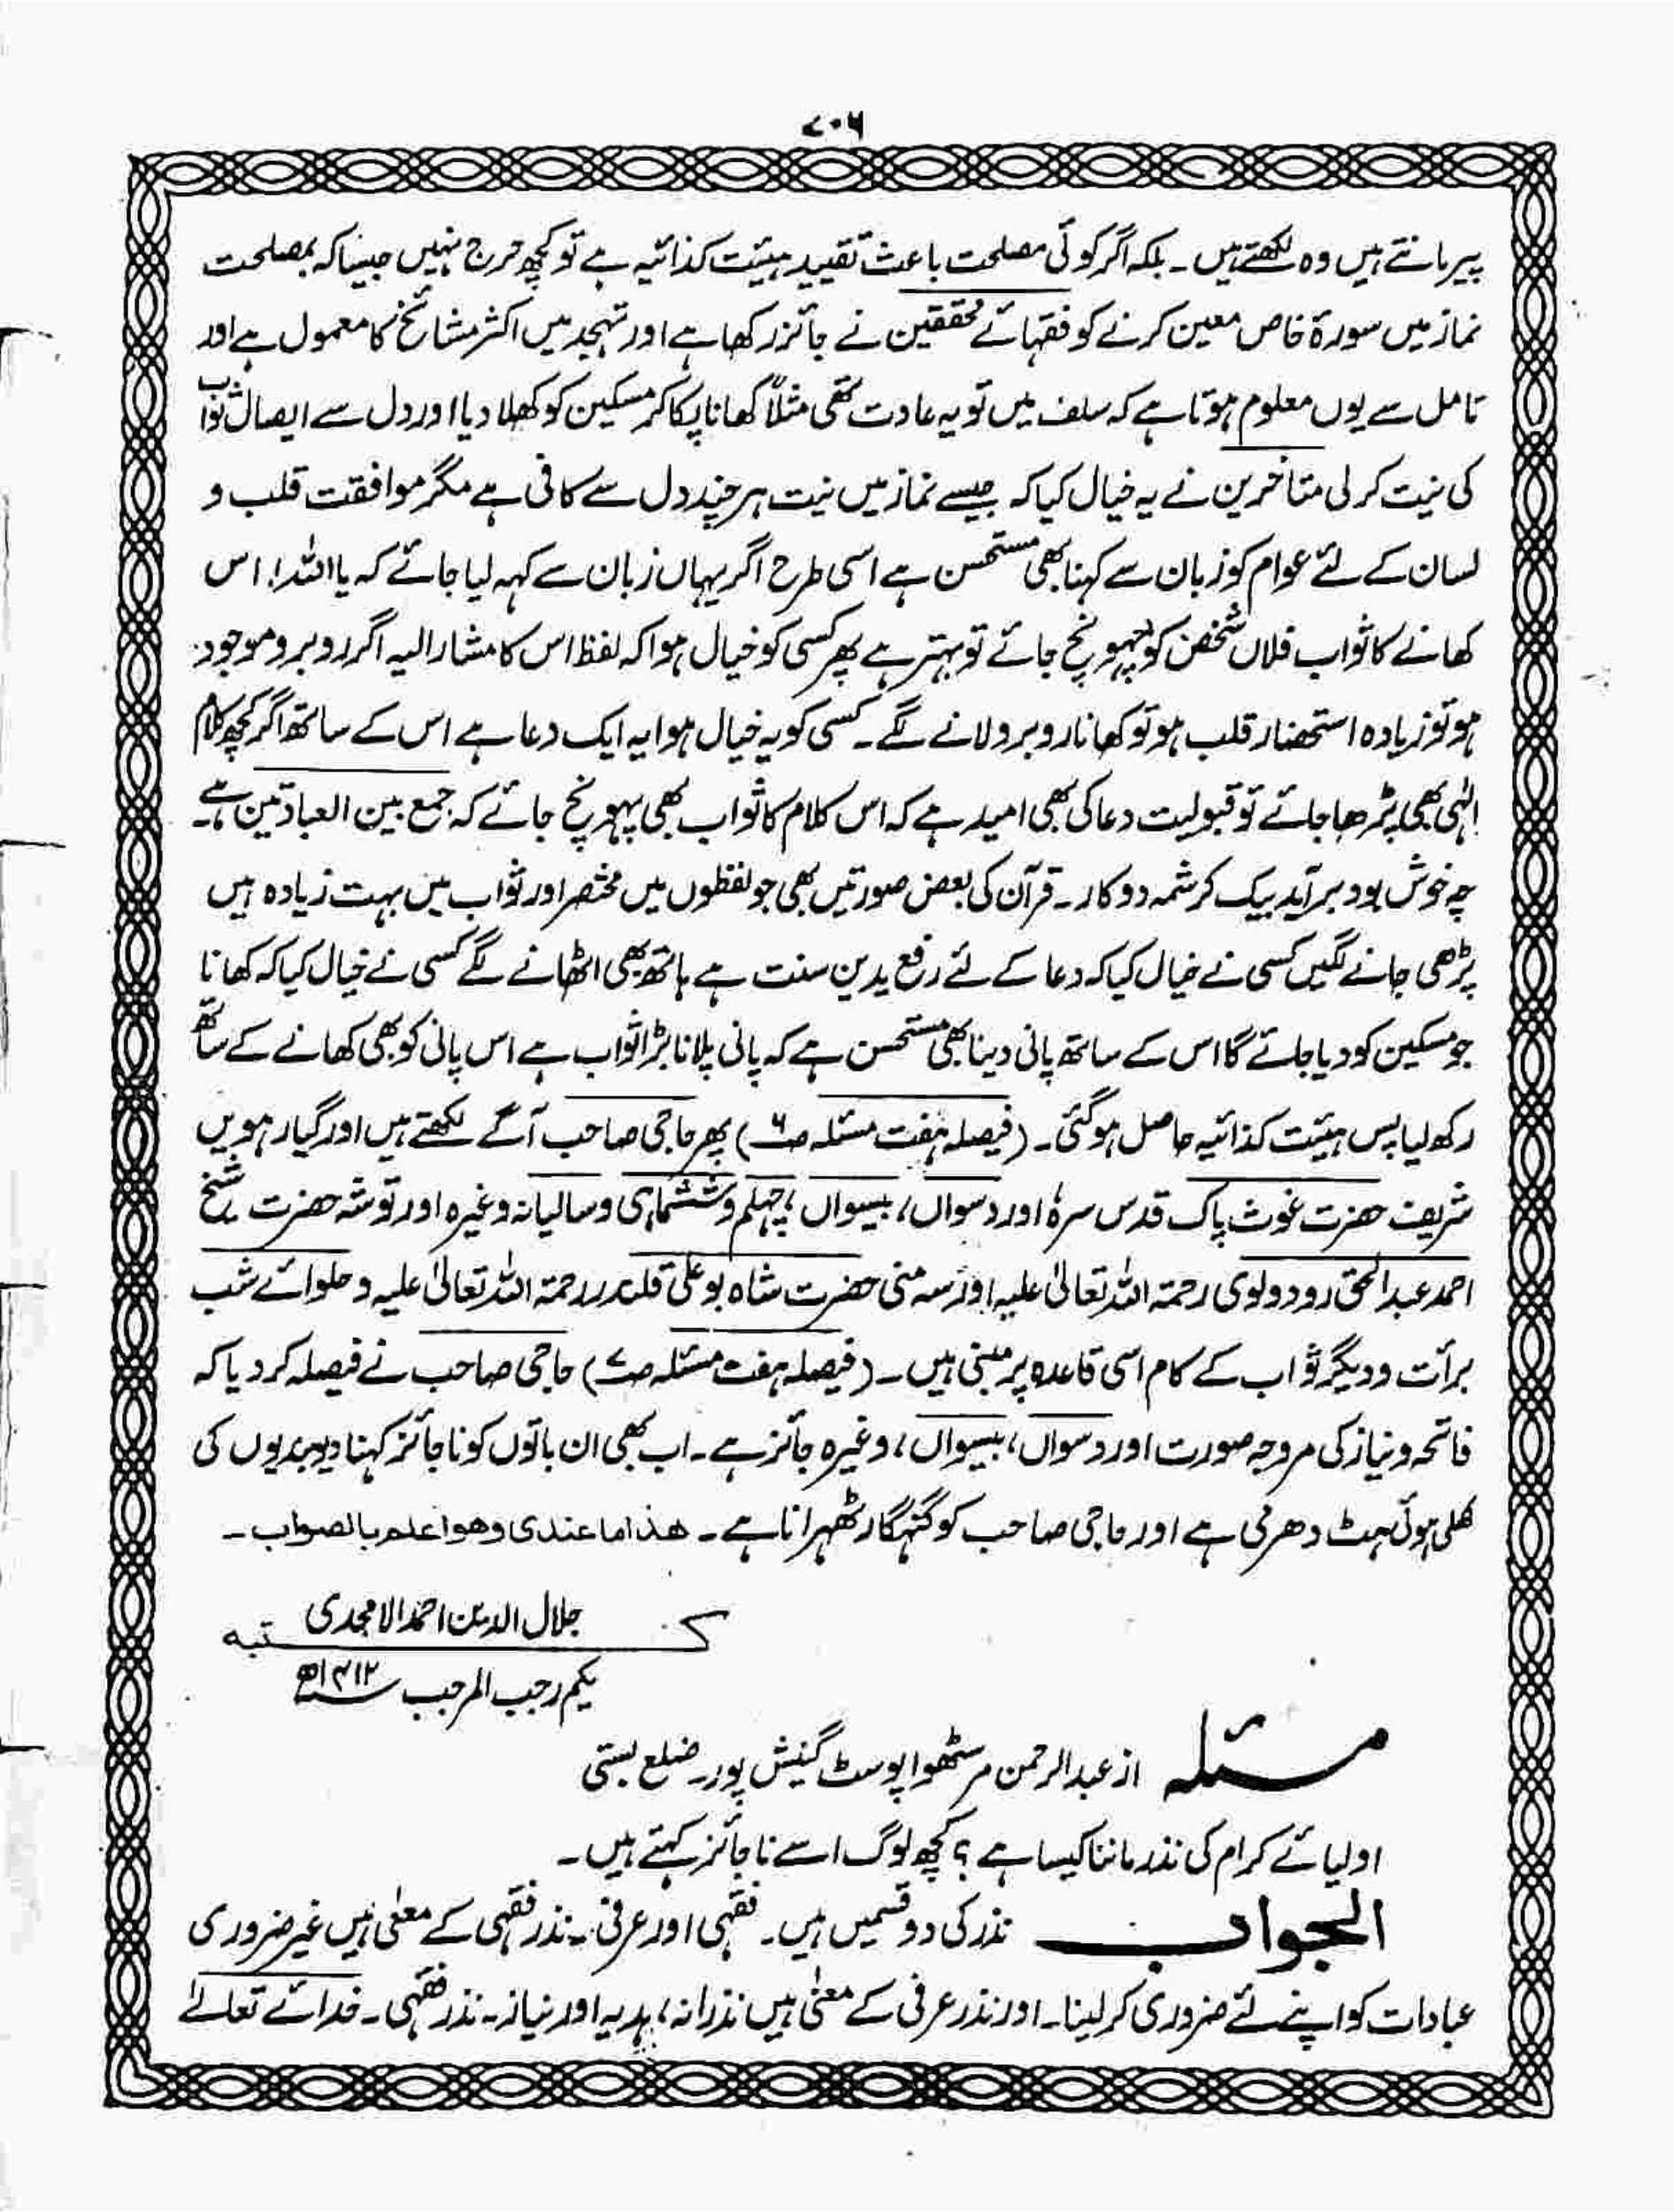 ۷۰۶
پیر مانتے ہیں وہ لکھتے ہیں۔ بلکہ اگر کوئی مصلحت باعث تقیید ہیئت کذائیہ ہے تو کچھ حرج نہیں جیسا کہ بمصلحت
نماز میں سورۃ خاص معین کرنے کو فقہائے محققین نے جائز رکھا ہے اور تہجد میں اکثر مشائخ کا معمول ہے اور
تامل سے یوں معلوم ہوتا ہے کہ سلف میں تو یہ عادت تھی مثلاً کھانا پکا کر مسکین کو کھلا دیا اور دل سے ایصال ثواب
کی نیت کر لی متاخرین نے یہ خیال کیا کہ جیسے نماز میں نیت ہر چند دل سے کافی ہے مگر موافقت قلب و
لسان کے لئے عوام کو زبان سے کہنا بھی مستحسن ہے اسی طرح اگر یہاں زبان سے کہہ لیا جائے کہ یا اللہ! اس
کھانے کا ثواب فلاں شخص کو پہونچ جائے تو بہتر ہے پھر کسی کو خیال ہوا کہ لفظ اس کا مشار الیہ اگر روبرو موجود
ہو تو زیادہ استحضار قلب ہو تو کھانا روبرو لانے لگے۔ کسی کو یہ خیال ہوا یہ ایک دعا ہے اس کے ساتھ اگر کچھ کلام
الٰہی بھی پڑھا جائے تو قبولیت دعا کی بھی امید ہے کہ اس کلام کا ثواب بھی پہونچ جائے کہ جمع بین العبادتین ہے۔
چہ خوش بود برآید بیک کرشمہ دو کار۔ قرآن کی بعض صورتیں بھی جو لفظوں میں مختصر اور ثواب میں بہت زیادہ ہیں
پڑھی جانے لگیں کسی نے خیال کیا کہ دعا کے لئے رفع یدین سنت ہے ہاتھ بھی اٹھانے لگے کسی نے خیال کیا کہ کھانا
جو مسکین کو دیا جائے گا اس کے ساتھ پانی دینا بھی مستحسن ہے کہ پانی پلانا بڑا ثواب ہے اس پانی کو بھی کھانے کے ساتھ
رکھ لیا پس ہیئت کذائیہ حاصل ہو گئی۔ (فیصلہ ہفت مسئلہ ص۶) پھر حاجی صاحب آگے لکھتے ہیں اور گیارہویں
شریف حضرت غوث پاک قدس سرہٗ اور دسواں، بیسواں، چہلم و ششماہی و سالیانہ وغیرہ اور توشہ حضرت شیخ
احمد عبد الحق رودولوی رحمۃ اللہ تعالیٰ علیہ اور سہ منی حضرت شاہ بو علی قلندر رحمۃ اللہ تعالیٰ علیہ و حلوائے شب
برأت و دیگر ثواب کے کام اسی قاعدہ پر مبنی ہیں۔ (فیصلہ ہفت مسئلہ ص۷) حاجی صاحب نے فیصلہ کر دیا کہ
فاتحہ و نیاز کی مروجہ صورت اور دسواں، بیسواں، وغیرہ جائز ہے۔ اب بھی ان باتوں کو ناجائز کہنا دیوبندیوں کی
کھلی ہوئی ہٹ دھرمی ہے اور حاجی صاحب کو گنہگار ٹھہرانا ہے۔ هذا ما عندی وهو اعلم بالصواب۔
جلال الدین احمد الامجدی
کتبه
یکم رجب المرجب ۱۴۱۲ھ
مسئلہ از عبد الرحمن مرسٹھوا پوسٹ گنیش پور۔ ضلع بستی
اولیائے کرام کی نذر ماننا کیسا ہے؟ کچھ لوگ اسے ناجائز کہتے ہیں۔
الجواب نذر کی دو قسمیں ہیں۔ فقہی اور عرفی۔ نذر فقہی کے معنٰی ہیں غیر ضروری
عبادات کو اپنے لئے ضروری کر لینا۔ اور نذر عرفی کے معنٰی ہیں نذرانہ، ہدیہ اور نیاز۔ نذر فقہی۔ خدائے تعالےٰ